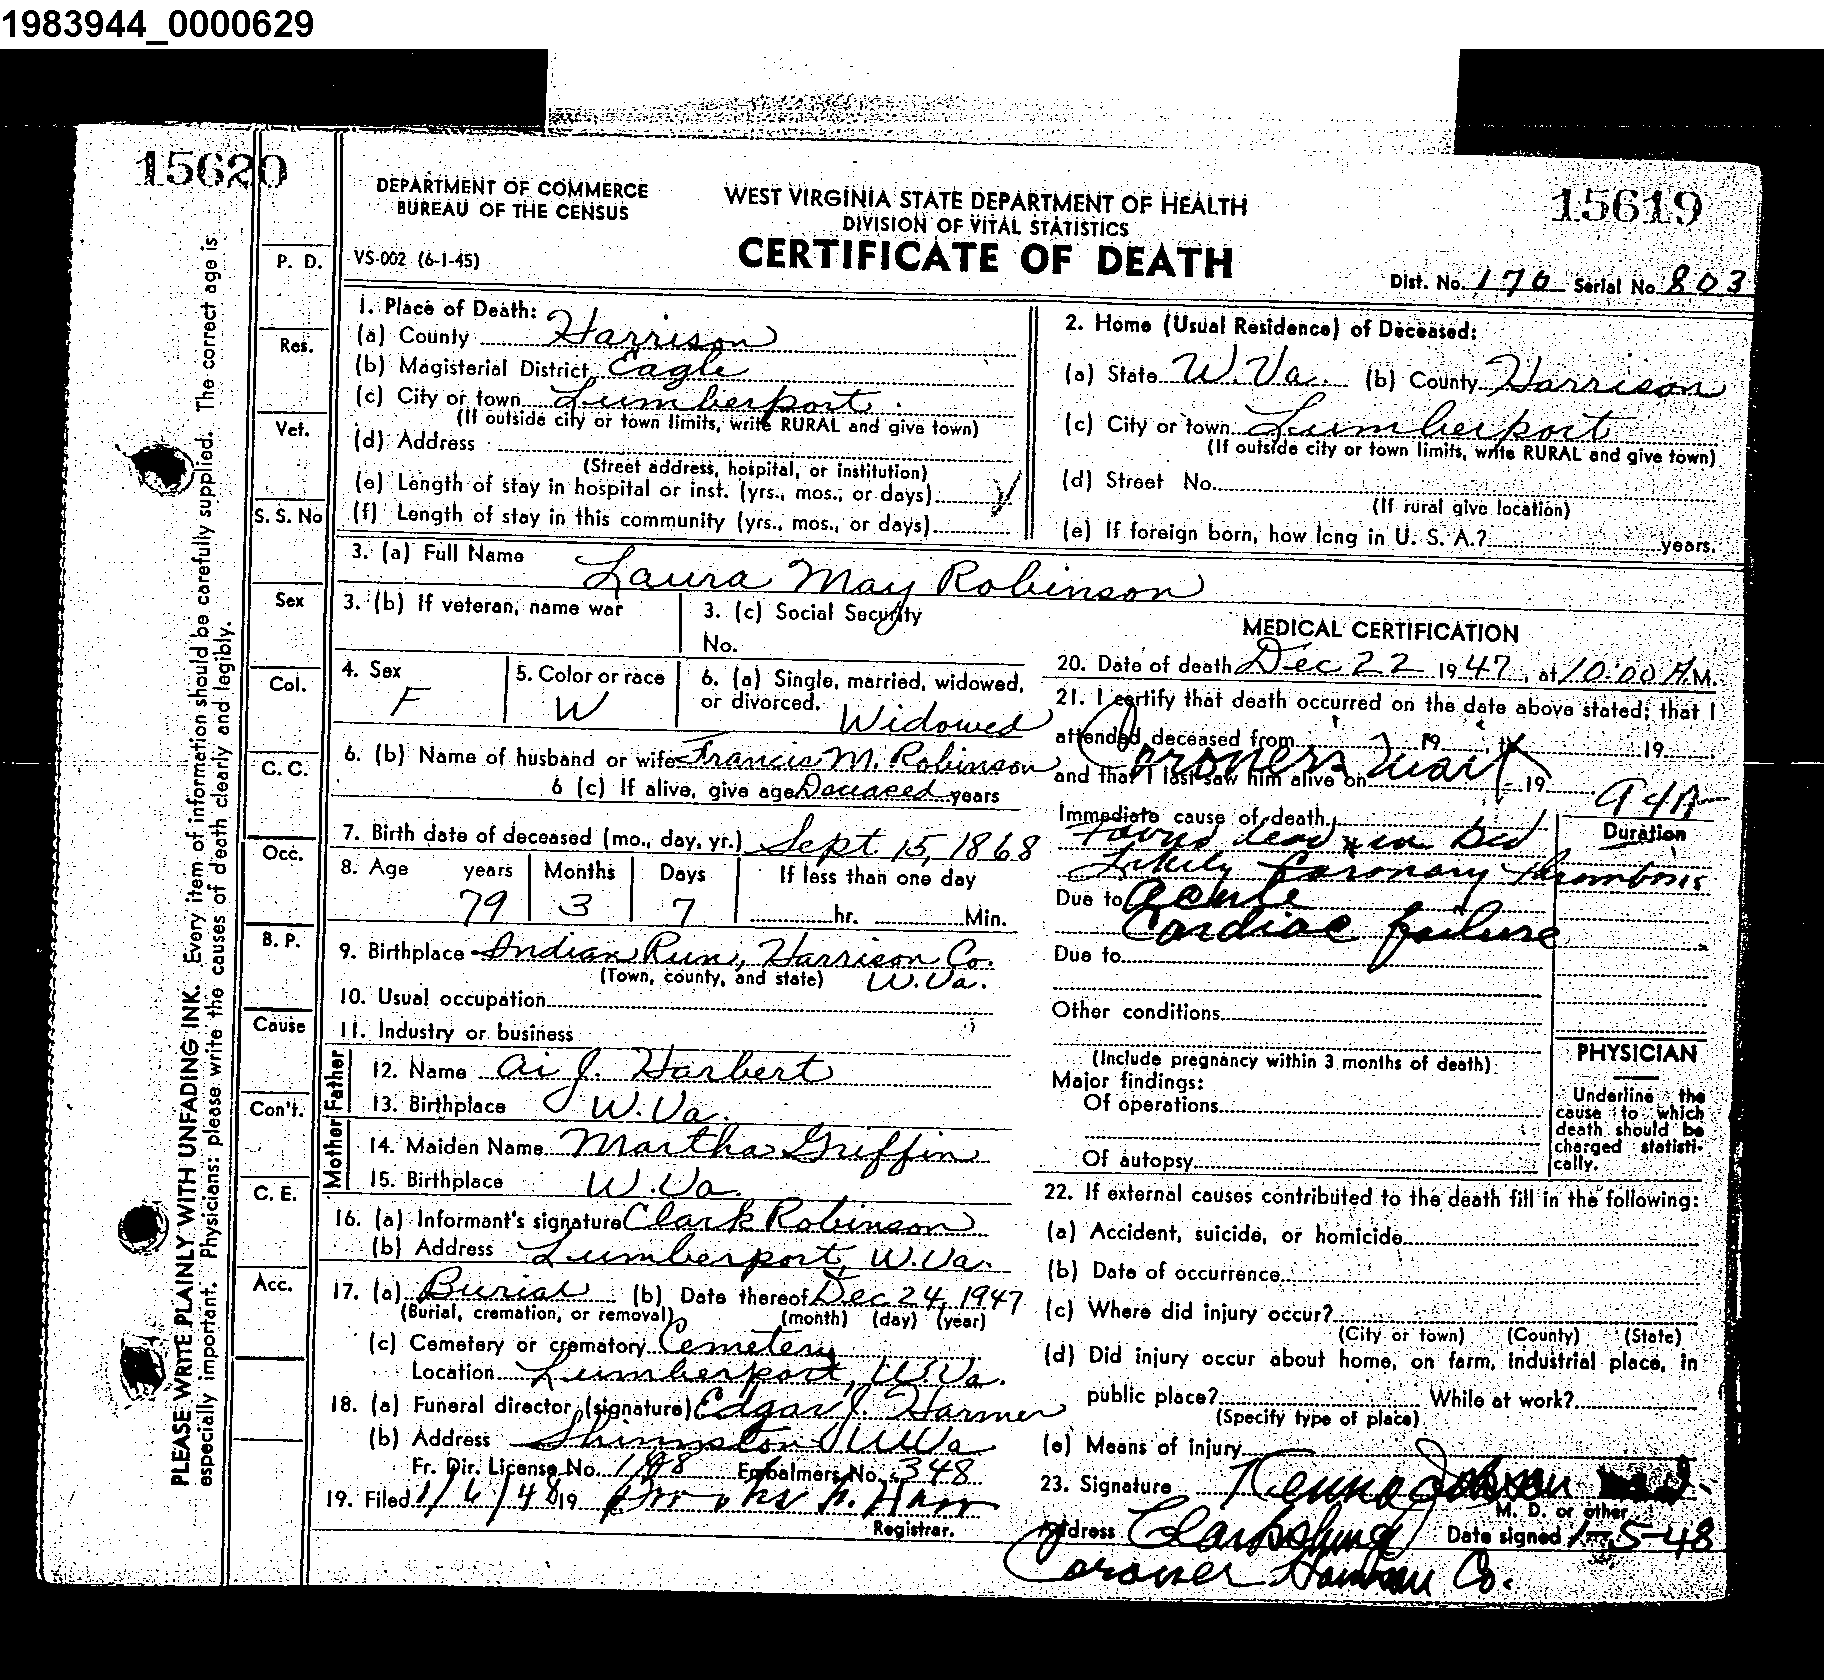 1983944_0000629
15620
15619
DEPARTMENT OF COMMERCE
BUREAU OF THE CENSUS
WEST VIRGINIA STATE DEPARTMENT OF HEALTH
DIVISION OF VITAL STATISTICS
CERTIFICATE OF DEATH
VS-002 (6-1-45)
Dist. No. 170 Serial No 803
PLEASE WRITE PLAINLY WITH UNFADING INK. Every item of information should be carefully supplied. The correct age is
especially important. Physicians: please write the causes of death clearly and legibly.
P. D.
Res.
Vet.
S. S. No
Sex
Col.
C. C.
Occ.
B. P.
Cause
Con't.
C. E.
Acc.
1. Place of Death:
(a) County Harrison
(b) Magisterial District Eagle
(c) City or town Lumberport
(If outside city or town limits, write RURAL and give town)
(d) Address
(Street address, hospital, or institution)
(e) Length of stay in hospital or inst. (yrs., mos., or days)
(f) Length of stay in this community (yrs., mos., or days)
2. Home (Usual Residence) of Deceased:
(a) State W. Va. (b) County Harrison
(c) City or town Lumberport
(If outside city or town limits, write RURAL and give town)
(d) Street No.
(If rural give location)
(e) If foreign born, how long in U. S. A.? years.
3. (a) Full Name Laura May Robinson
3. (b) If veteran, name war
3. (c) Social Security
No.
4. Sex
F
5. Color or race
W
6. (a) Single, married, widowed,
or divorced. Widowed
6. (b) Name of husband or wife Francis M. Robinson
6 (c) If alive, give age Deceased years
7. Birth date of deceased (mo., day, yr.) Sept. 15, 1868
8. Age years Months Days If less than one day
79 3 7 hr. Min.
9. Birthplace Indian Run, Harrison Co.
(Town, county, and state) W. Va.
10. Usual occupation
11. Industry or business
Father
12. Name Ai J. Harbert
13. Birthplace W. Va.
Mother
14. Maiden Name Martha Griffin
15. Birthplace W. Va.
16. (a) Informant's signature Clark Robinson
(b) Address Lumberport, W. Va.
17. (a) Burial (b) Date thereof Dec 24, 1947
(Burial, cremation, or removal) (month) (day) (year)
(c) Cemetery or crematory Cemetery
Location Lumberport, W. Va.
18. (a) Funeral director (signature) Edgar J. Harmer
(b) Address Shinnston W Va
Fr. Dir. License No. Embalmers No. 348
19. Filed 1/6/48 19
Registrar.
MEDICAL CERTIFICATION
20. Date of death Dec 22 1947, at 10:00 A.M.
21. I certify that death occurred on the date above stated; that I
attended deceased from 19 19
and that I last saw him alive on 19
Coroners
94A
Immediate cause of death
Duration
Found dead in bed
Likely Coronary thrombosis
Due to Acute
Cardiac failure
Due to
Other conditions
(Include pregnancy within 3 months of death)
Major findings:
Of operations
Of autopsy
PHYSICIAN
Underline the
cause to which
death should be
charged statisti-
cally.
22. If external causes contributed to the death fill in the following:
(a) Accident, suicide, or homicide
(b) Date of occurrence
(c) Where did injury occur?
(City or town) (County) (State)
(d) Did injury occur about home, on farm, industrial place, in
public place? While at work?
(Specify type of place)
(e) Means of injury
23. Signature
M. D. or other
Address Clarksburg Date signed 1-5-48
Coroner Harrison Co.